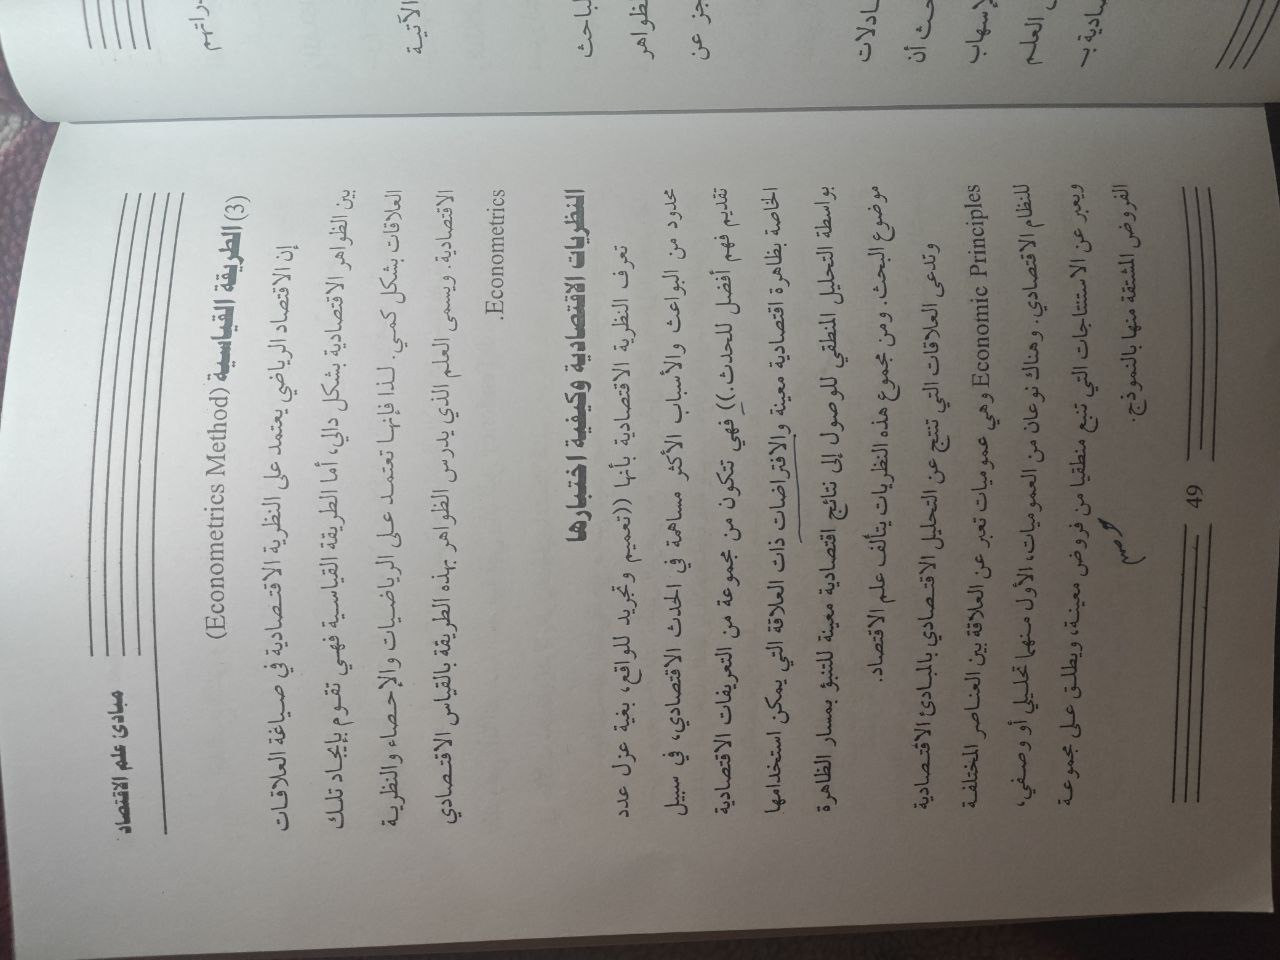 مبادئ علم الاقتصاد
(3) الطريقة القياسية (Econometrics Method)
إن الاقتصاد الرياضي يعتمد على النظرية الاقتصادية في صياغة العلاقات
بين الظواهر الاقتصادية بشكل دالي، أما الطريقة القياسية فهي تقوم بإيجاد تلك
العلاقات بشكل كمي. لذا فإنها تعتمد على الرياضيات والإحصاء والنظرية
الاقتصادية. ويسمى العلم الذي يدرس الظواهر بهذه الطريقة بالقياس الاقتصادي
Econometrics.
النظريات الاقتصادية وكيفية اختبارها
تعرف النظرية الاقتصادية بأنها ((تعميم وتجريد للواقع، بغية عزل عدد
محدود من البواعث والأسباب الأكثر مساهمة في الحدث الاقتصادي، في سبيل
تقديم فهم أفضل للحدث.)) فهي تتكون من مجموعة من التعريفات الاقتصادية
الخاصة بظاهرة اقتصادية معينة والافتراضات ذات العلاقة التي يمكن استخدامها
بواسطة التحليل المنطقي للوصول إلى نتائج اقتصادية معينة للتنبؤ بمسار الظاهرة
موضوع البحث. ومن مجموع هذه النظريات يتألف علم الاقتصاد.
وتدعى العلاقات التي تنتج عن التحليل الاقتصادي بالمبادئ الاقتصادية
Economic Principles وهي عموميات تعبر عن العلاقة بين العناصر المختلفة
للنظام الاقتصادي. وهناك نوعان من العموميات، الأول منهما تحليلي أو وصفي،
ويعبر عن الاستنتاجات التي تنبع منطقيا من فروض معينة، ويطلق على مجموعة
الفروض المشتقة منها بالنموذج.
49
راتهم
الآتية
لباحث
لظواهر
جز عن
ادلات
حث أن
لإسهاب
العلم